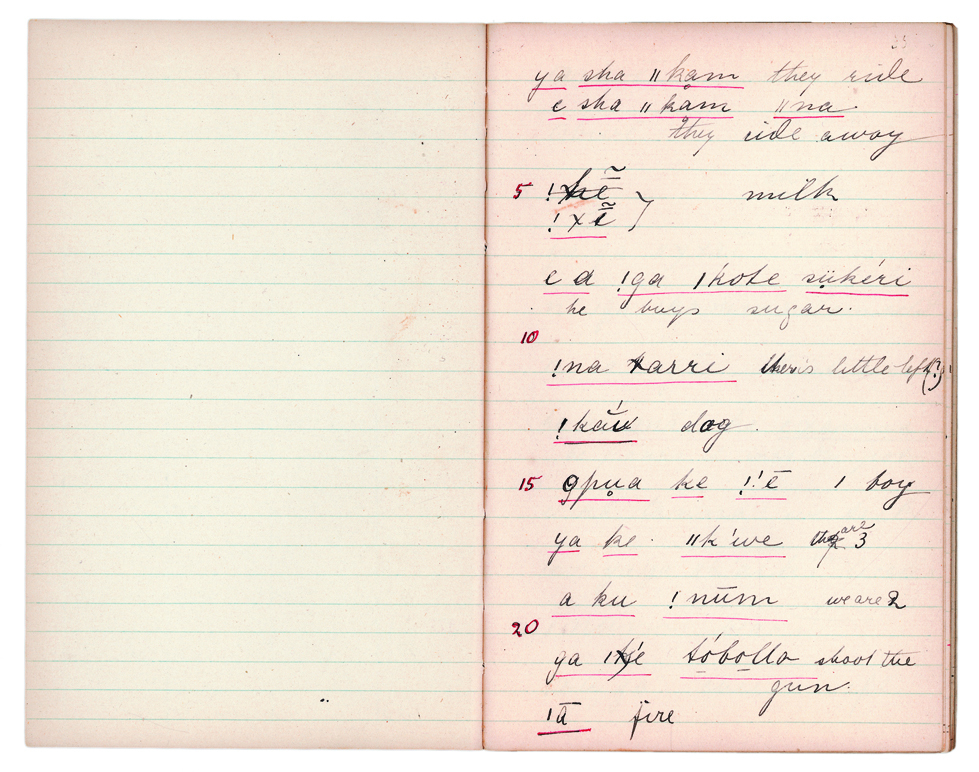 ya sha ǁkạm they ride
e sha ǁkạm ǁna
they ride away
5 milk
!xẽ̄
e a !ga ǀkote sụ̈kéri
he buys sugar.
10
!na karri there is little left (?)
!kăúx dog.
15 ʘpụa ke !'ē 1 boy
ya ke ǁk'we they are 3
a ku !nūm we are 2
20
ga tóbollo shoot the
gun.
ǀā fire